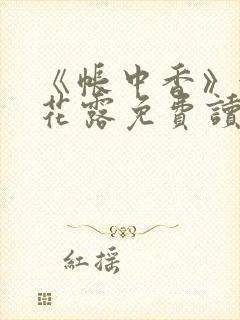 《帳中香》
花露免費讀
紅搖